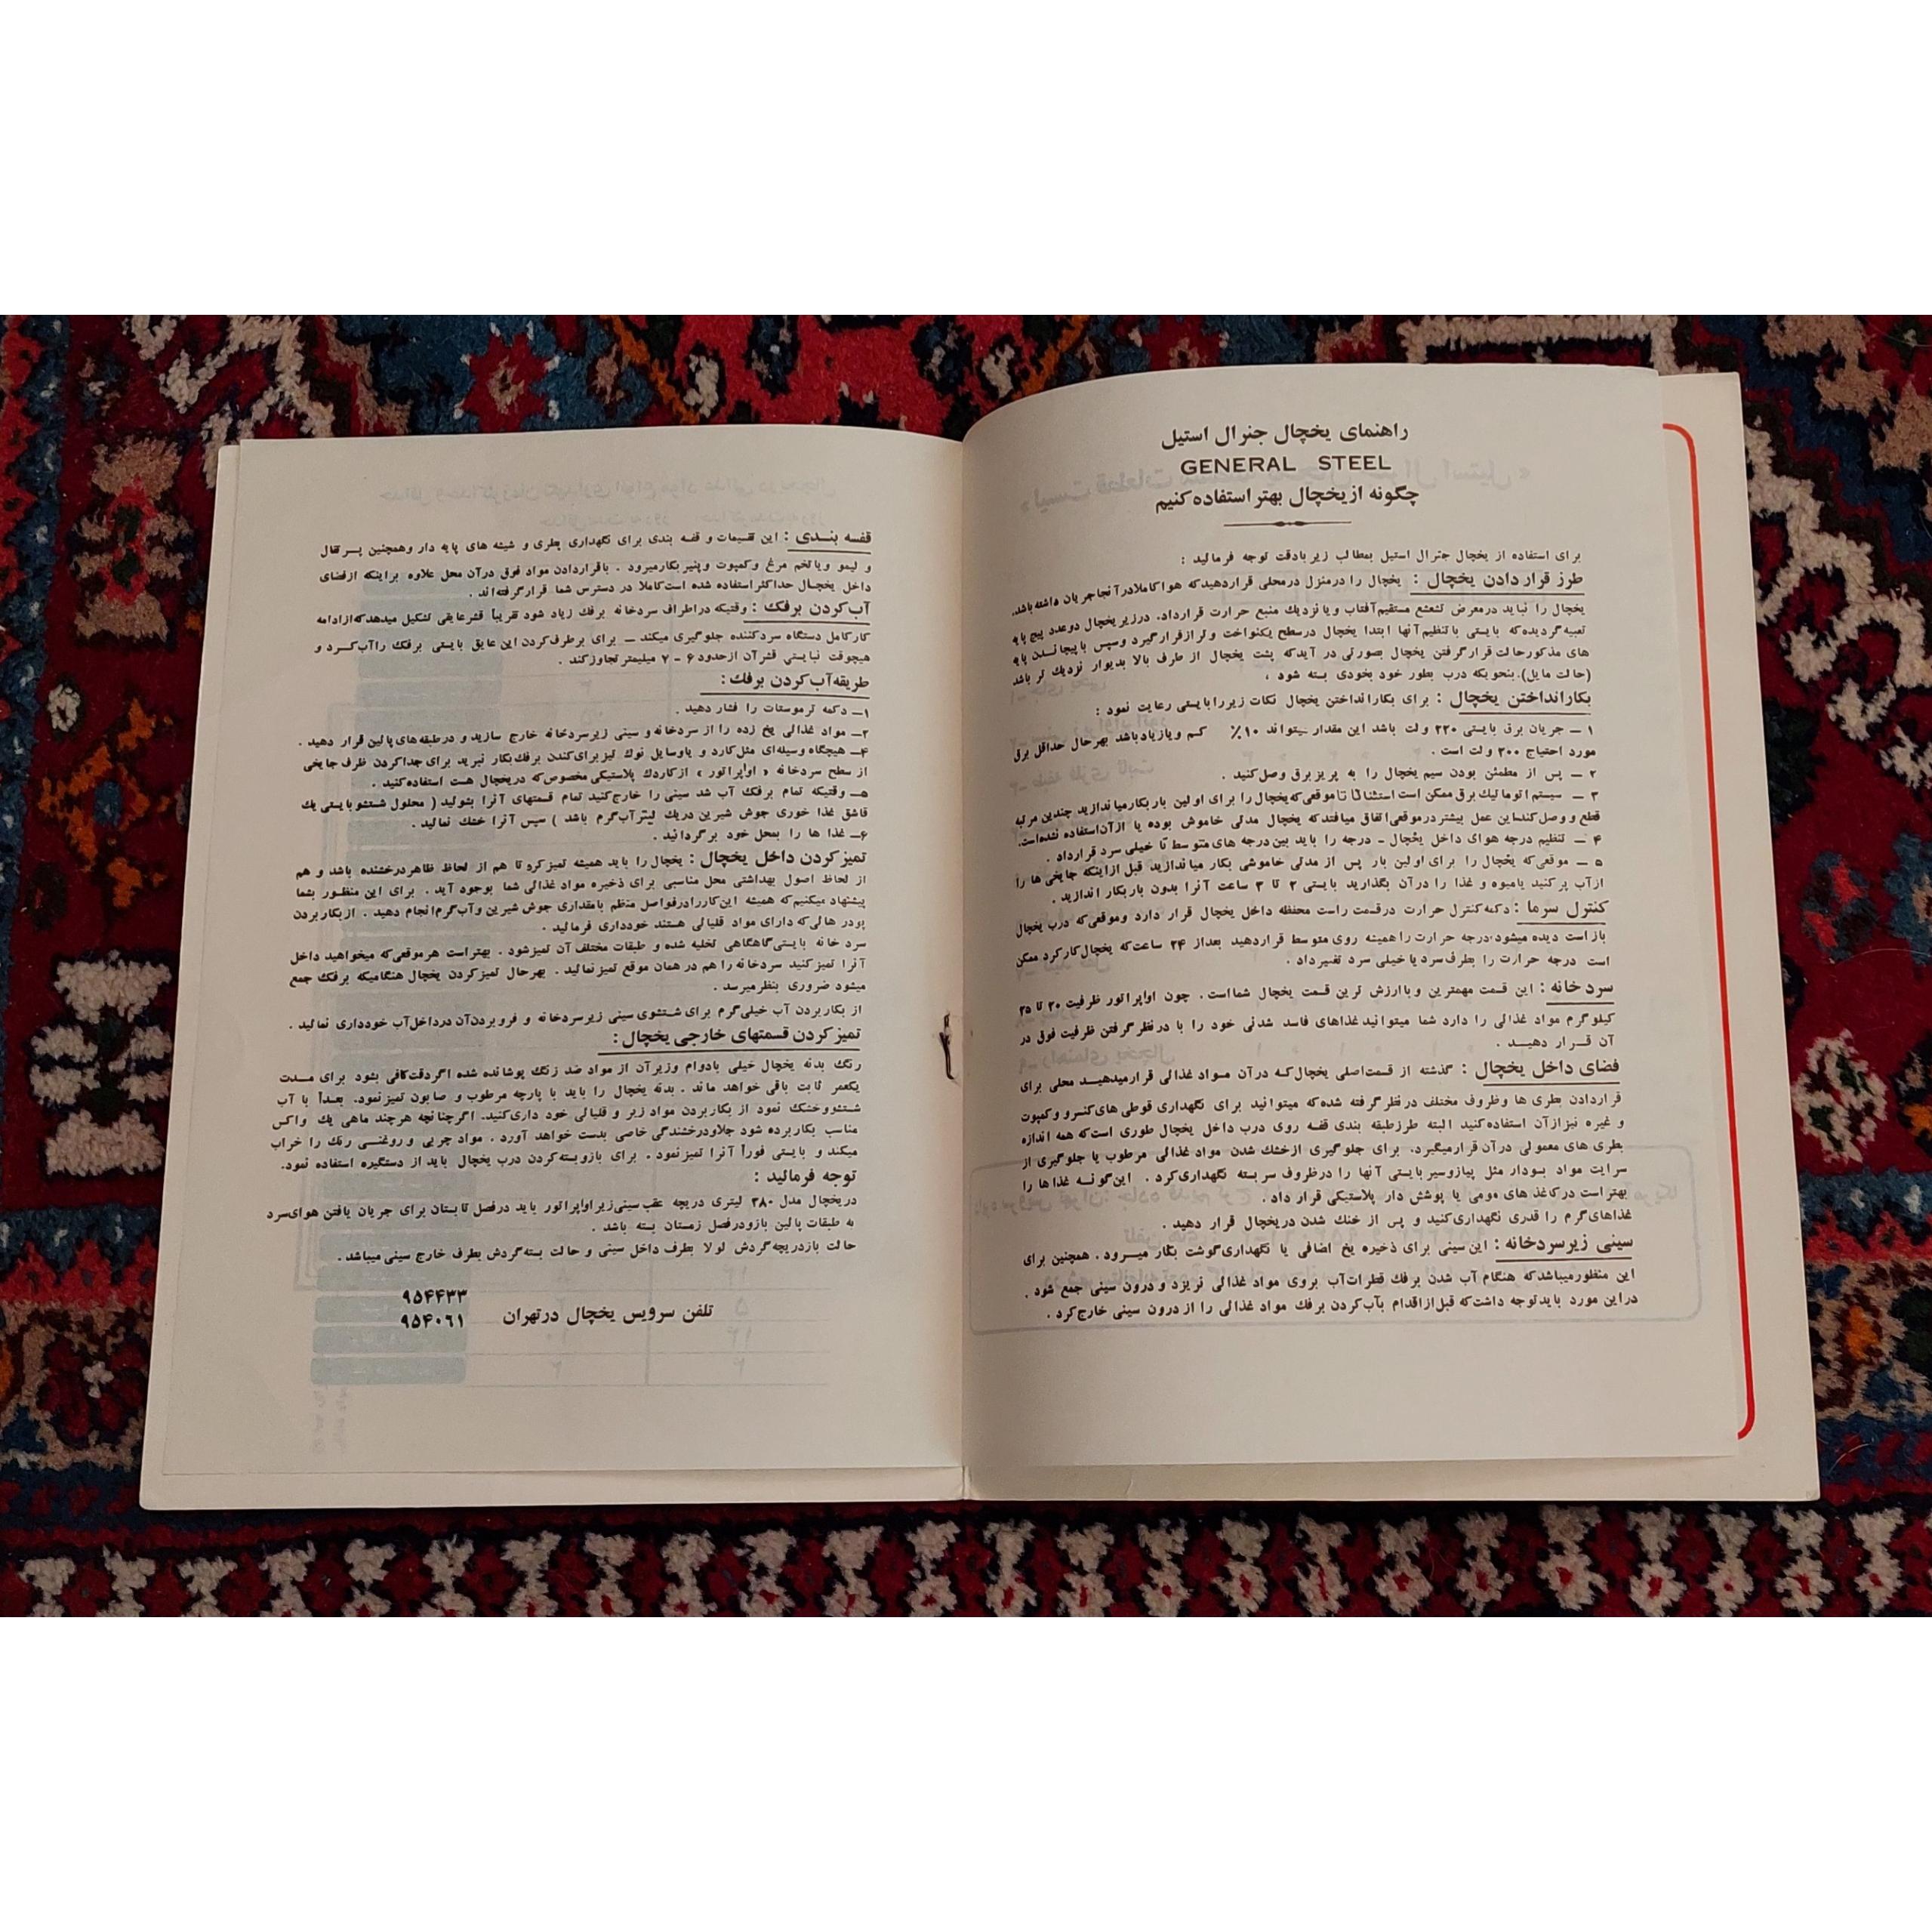 راهنمای یخچال جنرال استیل
GENERAL STEEL
چگونه از یخچال بهتر استفاده کنیم
برای استفاده از یخچال جنرال استیل بمطالب زیر بادقت توجه فرمائید :
طرز قرار دادن یخچال : یخچال را در منزل در محلی قرار دهید که هوا کاملا در آنجا جریان داشته باشد.
یخچال را نباید در معرض تشعشع مستقیم آفتاب و یا نزدیك منبع حرارت قرار داد. در زیر یخچال دو عدد پیچ پایه
تعبیه گردیده که بایستی با تنظیم آنها ابتدا یخچال در سطح یکنواخت و تراز قرار گیرد و سپس با پیچاندن پایه
های مذکور حالت قرار گرفتن یخچال بصورتی در آید که پشت یخچال از طرف بالا بدیوار نزدیك تر باشد
(حالت مایل). بنحویکه درب بطور خود بخودی بسته شود .
بکار انداختن یخچال : برای بکار انداختن یخچال نکات زیر را بایستی رعایت نمود :
۱ – جریان برق بایستی ۲۲۰ ولت باشد این مقدار میتواند ۱۰٪ کم و یا زیاد باشد بهر حال حداقل برق
مورد احتیاج ۲۰۰ ولت است .
۲ – پس از مطمئن بودن سیم یخچال را به پریز برق وصل کنید .
۳ – سیستم اتوماتیك برق ممکن است استثنائا تا موقعی که یخچال را برای اولین بار بکار میاندازید چندین مرتبه
قطع و وصل کند این عمل بیشتر در موقعی اتفاق میافتد که یخچال مدتی خاموش بوده یا از آن استفاده نشده است.
۴ – تنظیم درجه هوای داخل یخچال – درجه را باید بین درجه های متوسط تا خیلی سرد قرار داد .
۵ – موقعی که یخچال را برای اولین بار پس از مدتی خاموشی بکار میاندازید قبل از اینکه جایخی ها را
از آب پر کنید یا میوه و غذا را در آن بگذارید بایستی ۲ تا ۳ ساعت آنرا بدون بار بکار اندازید .
کنترل سرما : دکمه کنترل حرارت در قسمت راست محفظه داخل یخچال قرار دارد و موقعی که درب یخچال
باز است دیده میشود درجه حرارت را همیشه روی متوسط قرار دهید بعد از ۲۴ ساعت که یخچال کار کرد ممکن
است درجه حرارت را بطرف سرد یا خیلی سرد تغییر داد .
سرد خانه : این قسمت مهمترین و با ارزش ترین قسمت یخچال شما است . چون اواپراتور ظرفیت ۲۰ تا ۲۵
کیلو گرم مواد غذائی را دارد شما میتوانید غذاهای فاسد شدنی خود را با در نظر گرفتن ظرفیت فوق در
آن قرار دهید .
فضای داخل یخچال : گذشته از قسمت اصلی یخچال که در آن مواد غذائی قرار میدهید محلی برای
قرار دادن بطری ها و ظروف مختلف در نظر گرفته شده که میتوانید برای نگهداری قوطی های کنسرو و کمپوت
و غیره نیز از آن استفاده کنید البته طرز طبقه بندی قفسه روی درب داخل یخچال طوری است که همه اندازه
بطری های معمولی در آن قرار میگیرد. برای جلوگیری از خشك شدن مواد غذائی مرطوب یا جلوگیری از
سرایت مواد بودار مثل پیاز و سیر بایستی آنها را در ظروف سر بسته نگهداری کرد . این گونه غذاها را
بهتر است در کاغذ های مومی یا پوشش دار پلاستیکی قرار داد .
غذاهای گرم را قدری نگهداری کنید و پس از خنك شدن در یخچال قرار دهید .
سینی زیر سردخانه : این سینی برای ذخیره یخ اضافی یا نگهداری گوشت بکار میرود . همچنین برای
این منظور میباشد که هنگام آب شدن برفك قطرات آب بروی مواد غذائی نریزد و درون سینی جمع شود .
در این مورد باید توجه داشت که قبل از اقدام بآب کردن برفك مواد غذائی را از درون سینی خارج کرد .
قفسه بندی : این تقسیمات و قفسه بندی برای نگهداری بطری و شیشه های پایه دار و همچنین پرتقال
و لیمو و یا تخم مرغ و کمپوت و پنیر بکار میرود . با قرار دادن مواد فوق در آن محل علاوه بر اینکه از فضای
داخل یخچال حداکثر استفاده شده است کاملا در دسترس شما قرار گرفته اند .
آب کردن برفك : وقتیکه در اطراف سردخانه برفك زیاد شود تقریباً قشر عایقی تشکیل میدهد که از ادامه
کار کامل دستگاه سرد کننده جلوگیری میکند – برای بر طرف کردن این عایق بایستی برفك را آب کرد و
هیچوقت نبایستی قشر آن از حدود ۶ - ۷ میلیمتر تجاوز کند .
طریقه آب کردن برفك :
۱– دکمه ترموستات را فشار دهید .
۲– مواد غذائی یخ زده را از سردخانه و سینی زیر سردخانه خارج سازید و در طبقه های پائین قرار دهید .
۴– هیچگاه وسیله ای مثل کارد و یا وسایل نوك تیز برای کندن برفك بکار نبرید برای جدا کردن ظرف جایخی
از سطح سردخانه « اواپراتور » از کاردك پلاستیکی مخصوص که در یخچال هست استفاده کنید .
۵– وقتیکه تمام برفك آب شد سینی را خارج کنید تمام قسمتهای آنرا بشوئید ( محلول شستشو بایستی یك
قاشق غذا خوری جوش شیرین در یك لیتر آب گرم باشد ) سپس آنرا خشك نمائید .
۶– غذا ها را بمحل خود برگردانید .
تمیز کردن داخل یخچال : یخچال را باید همیشه تمیز کرد تا هم از لحاظ ظاهر درخشنده باشد و هم
از لحاظ اصول بهداشتی محل مناسبی برای ذخیره مواد غذائی شما بوجود آید . برای این منظور بشما
پیشنهاد میکنیم که همیشه این کار را در فواصل منظم با مقداری جوش شیرین و آب گرم انجام دهید . از بکار بردن
پودر هائی که دارای مواد قلیائی هستند خودداری فرمائید .
سرد خانه بایستی گاهگاهی تخلیه شده و طبقات مختلف آن تمیز شود . بهتر است هر موقعی که میخواهید داخل
آنرا تمیز کنید سردخانه را هم در همان موقع تمیز نمائید . بهر حال تمیز کردن یخچال هنگامیکه برفك جمع
میشود ضروری بنظر میرسد .
از بکار بردن آب خیلی گرم برای شستشوی سینی زیر سردخانه و فرو بردن آن در داخل آب خودداری نمائید .
تمیز کردن قسمتهای خارجی یخچال :
رنگ بدنه یخچال خیلی بادوام و زیر آن از مواد ضد زنگ پوشانده شده اگر دقت کافی بشود برای مدت
یکعمر ثابت باقی خواهد ماند . بدنه یخچال را باید با پارچه مرطوب و صابون تمیز نمود. بعداً با آب
شستشو و خشك نمود از بکار بردن مواد زبر و قلیائی خود داری کنید. اگر چنانچه هر چند ماهی یك واکس
مناسب بکار برده شود جلا و درخشندگی خاصی بدست خواهد آورد . مواد چربی و روغنی رنگ را خراب
میکند و بایستی فوراً آنرا تمیز نمود . برای باز و بسته کردن درب یخچال باید از دستگیره استفاده نمود.
توجه فرمائید :
در یخچال مدل ۳۸۰ لیتری دریچه عقب سینی زیر اواپراتور باید در فصل تابستان برای جریان یافتن هوای سرد
به طبقات پائین باز و در فصل زمستان بسته باشد .
حالت باز دریچه گردش لولا بطرف داخل سینی و حالت بسته گردش بطرف خارج سینی میباشد .
تلفن سرویس یخچال در تهران ۹۵۴۴۳۳
۹۵۴۰۶۱